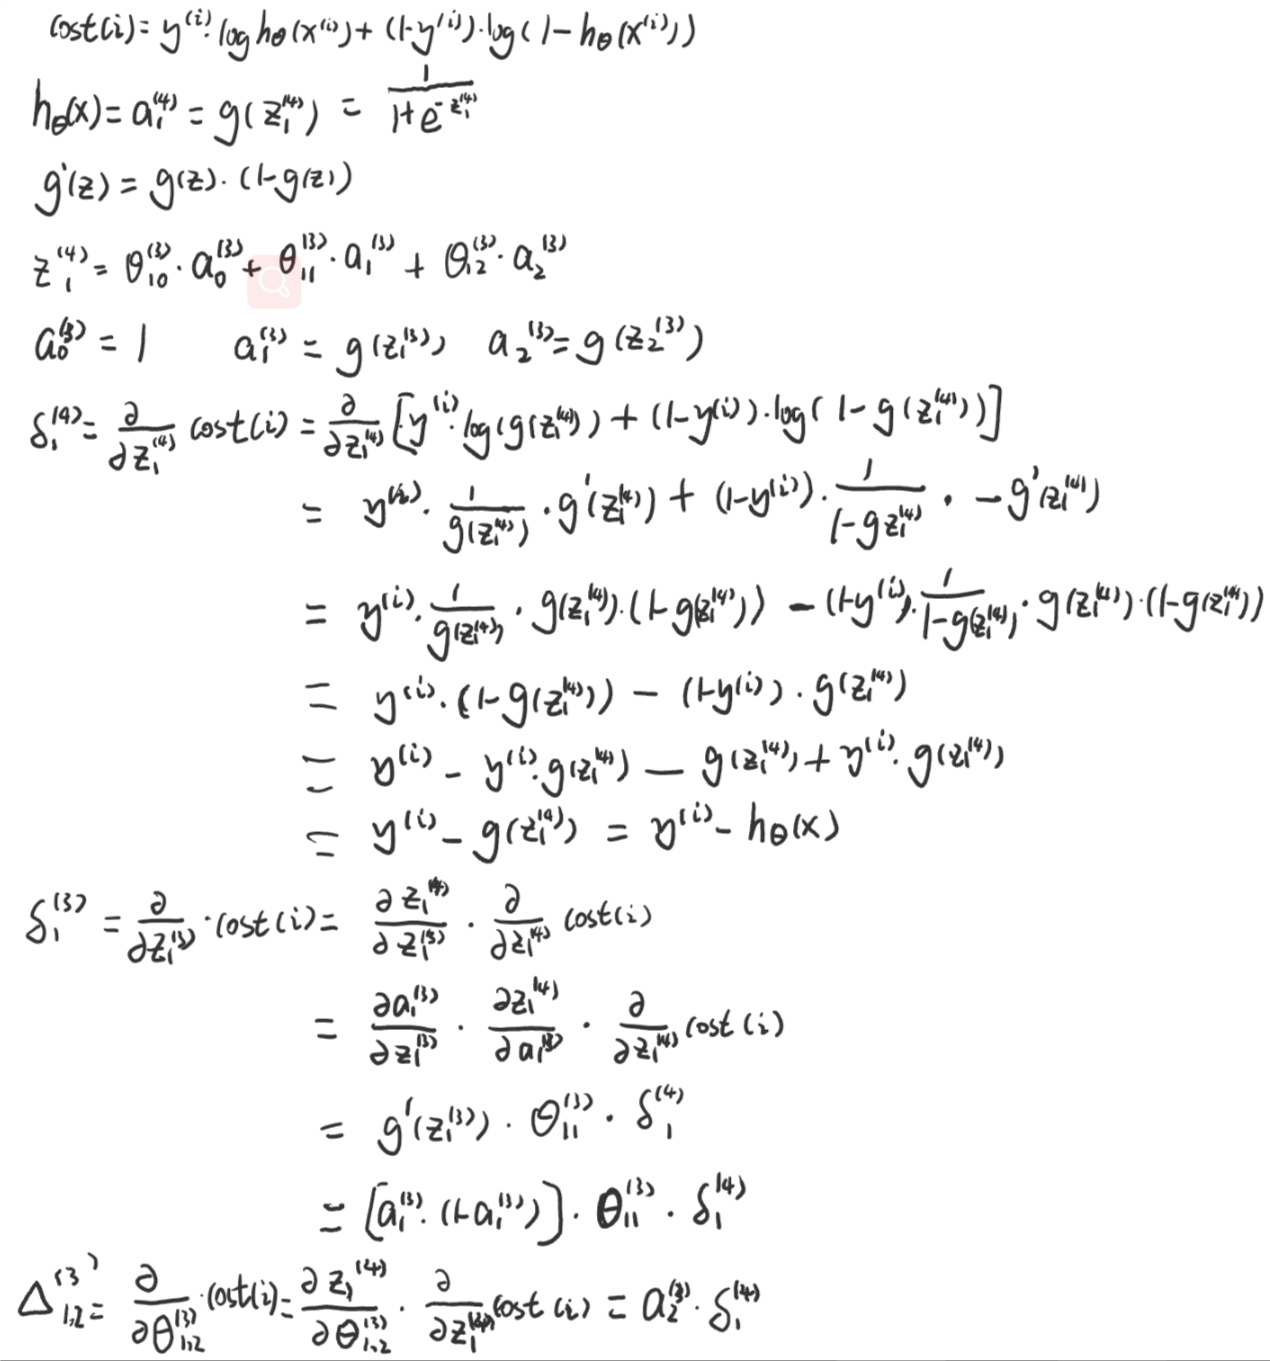 cost(i) = y^{(i)}·log hθ(x^{(i)}) + (1-y^{(i)})·log(1-hθ(x^{(i)}))
hθ(x) = a_1^{(4)} = g(z_1^{(4)}) = \frac{1}{1+e^{-z_1^{(4)}}}
g'(z) = g(z)·(1-g(z))
z_1^{(4)} = θ_{10}^{(3)}·a_0^{(3)} + θ_{11}^{(3)}·a_1^{(3)} + θ_{12}^{(3)}·a_2^{(3)}
a_0^{(3)} = 1 a_1^{(3)} = g(z_1^{(3)}) a_2^{(3)} = g(z_2^{(3)})
δ_1^{(4)} = \frac{∂}{∂z_1^{(4)}} cost(i) = \frac{∂}{∂z_1^{(4)}} [y^{(i)}·log(g(z_1^{(4)})) + (1-y^{(i)})·log(1-g(z_1^{(4)}))]
= y^{(i)}·\frac{1}{g(z_1^{(4)})}·g'(z_1^{(4)}) + (1-y^{(i)})·\frac{1}{1-g z_1^{(4)}}·-g'(z_1^{(4)})
= y^{(i)}·\frac{1}{g(z_1^{(4)})}·g(z_1^{(4)})·(1-g(z_1^{(4)})) - (1-y^{(i)})·\frac{1}{1-g(z_1^{(4)})}·g(z_1^{(4)})·(1-g(z_1^{(4)}))
= y^{(i)}·(1-g(z_1^{(4)})) - (1-y^{(i)})·g(z_1^{(4)})
= y^{(i)} - y^{(i)}·g(z_1^{(4)}) - g(z_1^{(4)}) + y^{(i)}·g(z_1^{(4)})
= y^{(i)} - g(z_1^{(4)}) = y^{(i)} - hθ(x)
δ_1^{(3)} = \frac{∂}{∂z_1^{(3)}}·cost(i) = \frac{∂z_1^{(4)}}{∂z_1^{(3)}}·\frac{∂}{∂z_1^{(4)}} cost(i)
= \frac{∂a_1^{(3)}}{∂z_1^{(3)}}·\frac{∂z_1^{(4)}}{∂a_1^{(3)}}·\frac{∂}{∂z_1^{(4)}} cost(i)
= g'(z_1^{(3)})·θ_{11}^{(3)}·δ_1^{(4)}
= [a_1^{(3)}·(1-a_1^{(3)})]·θ_{11}^{(3)}·δ_1^{(4)}
Δ_{1,2}^{(3)} = \frac{∂}{∂θ_{1,2}^{(3)}}·cost(i) = \frac{∂z_1^{(4)}}{∂θ_{1,2}^{(3)}}·\frac{∂}{∂z_1^{(4)}} cost(i) = a_2^{(3)}·δ_1^{(4)}